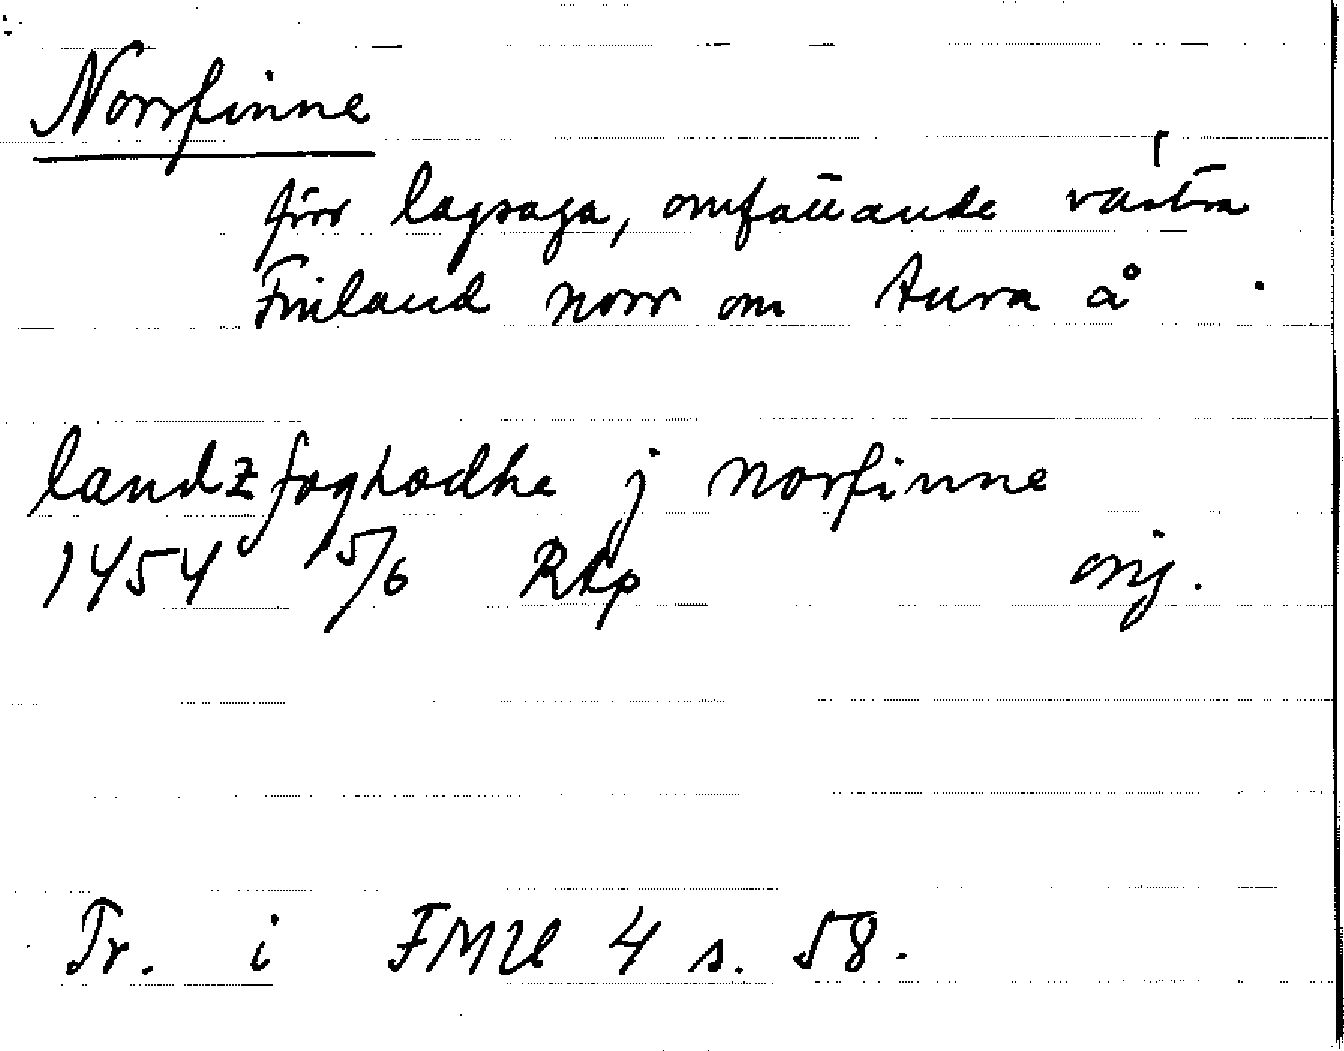 Norrfinne
förr lagsaga, omfattande västra
Finland norr om Aura å
landzfoghodhe j norfinne
1454 15/6 RAp orig.
Tr. i FMU 4 s. 58.